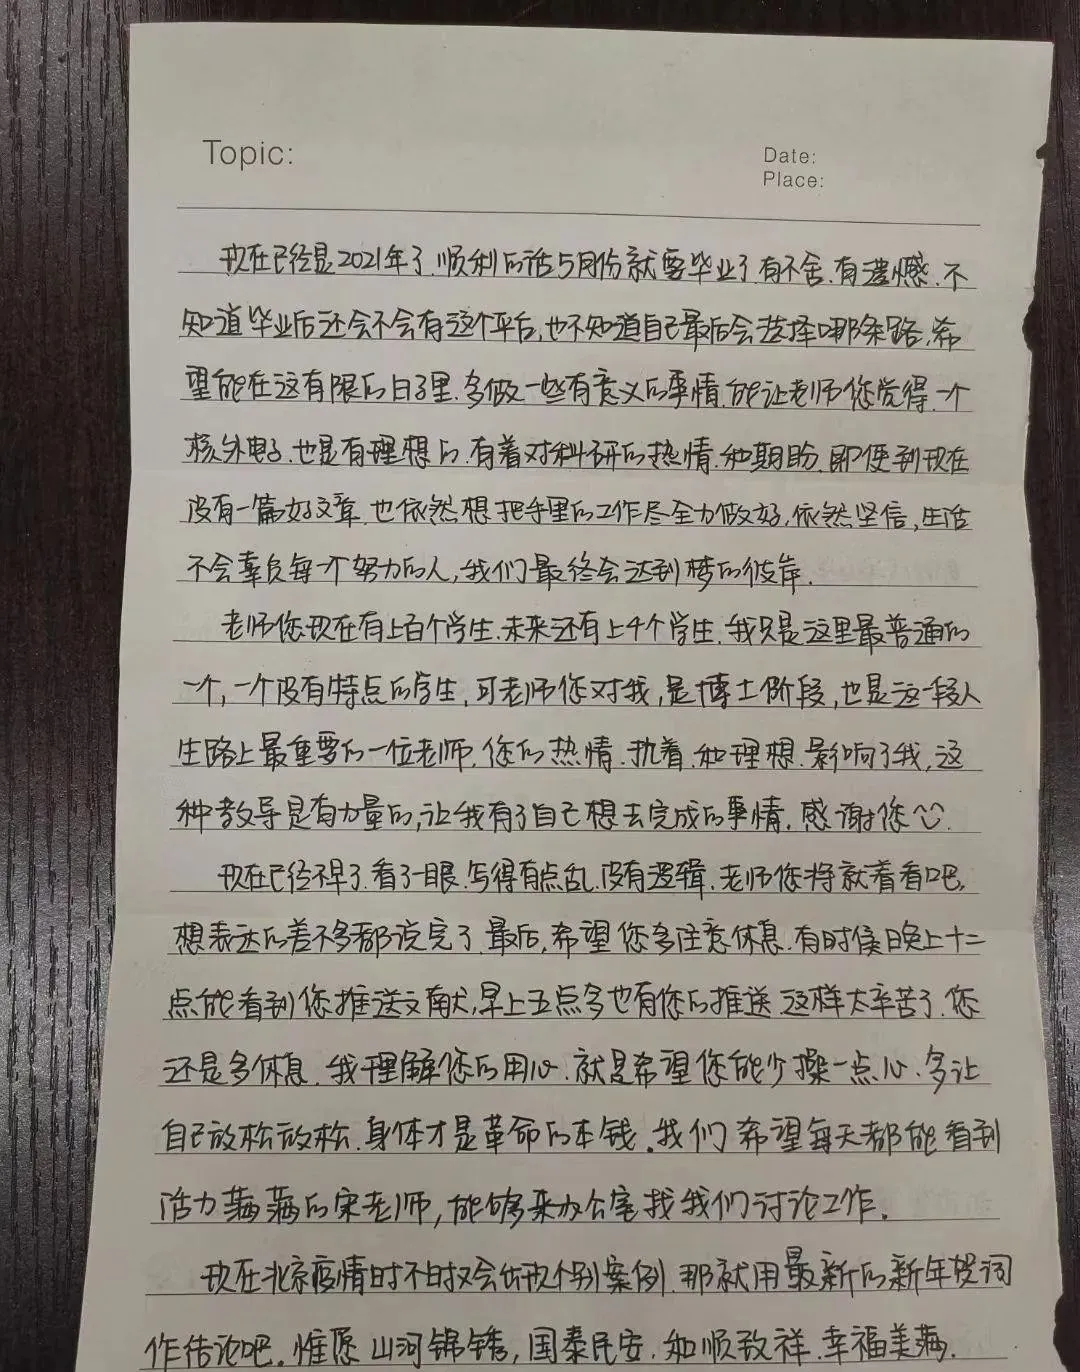 Topic:
Date:
Place:
现在已经是2021年了.顺利的话5月份就要毕业了.有不舍.有遗憾.不
知道毕业后还会不会有这个平台,也不知道自己最后会选择哪条路,希
望能在这有限的日子里.多做一些有意义的事情.能让老师您觉得.一个
核外电子.也是有理想的.有着对科研的热情.和期盼.即便到现在
没有一篇好文章.也依然想把手里的工作尽全力做好,依然坚信,生活
不会辜负每一个努力的人,我们最终会达到梦的彼岸.
老师您现在有上百个学生.未来还有上千个学生.我只是这里最普通的
一个,一个没有特点的学生,可老师您对我,是博士阶段,也是这一段人
生路上最重要的一位老师.您的热情.执着.和理想.影响了我,这
种教导是有力量的,让我有了自己想去完成的事情.感谢您
现在已经不早了.看了一眼.写得有点乱.没有逻辑.老师您将就着看吧.
想表达的差不多都说完了.最后,希望您多注意休息.有时候晚上十二
点能看到您推送文献,早上五点多也有您的推送.这样太辛苦了.您
还是多休息.我理解您的用心.就是希望您能少操一点心.多让
自己放松放松.身体才是革命的本钱.我们希望每天都能看到
活力满满的宋老师,能够来办公室找我们讨论工作.
现在北京疫情时不时又会出现个别案例.那就用最新的新年贺词
作结论吧.惟愿山河锦绣,国泰民安.和顺致祥.幸福美满.